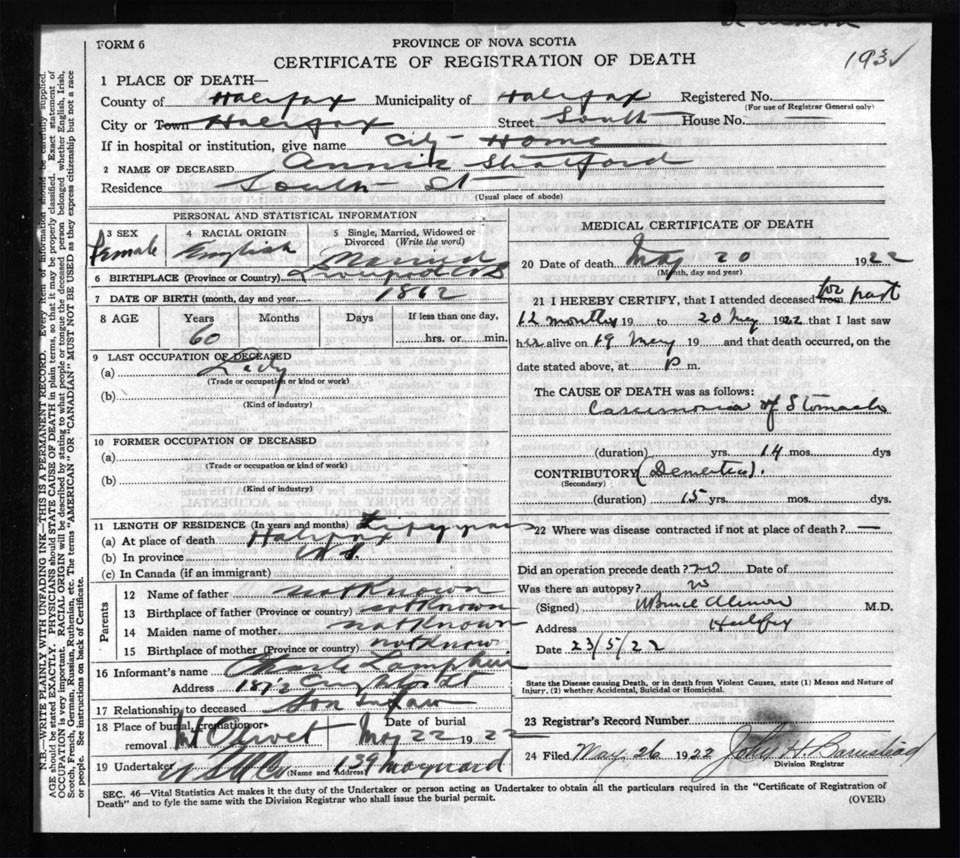 FORM 6
PROVINCE OF NOVA SCOTIA
CERTIFICATE OF REGISTRATION OF DEATH
193
1 PLACE OF DEATH—
County of Halifax Municipality of Halifax Registered No.
(For use of Registrar General only)
City or Town Halifax Street South House No. —
If in hospital or institution, give name City Home
2 NAME OF DECEASED Annie Stratford
Residence South St
(Usual place of abode)
PERSONAL AND STATISTICAL INFORMATION
3 SEX Female
4 RACIAL ORIGIN English
5 Single, Married, Widowed or Divorced (Write the word) Married
6 BIRTHPLACE (Province or Country) Liverpool NS
7 DATE OF BIRTH (month, day and year) 1862
8 AGE Years Months Days If less than one day,
60 hrs. or min.
9 LAST OCCUPATION OF DECEASED
(a) Lady
(Trade or occupation or kind or work)
(b)
(Kind of industry)
10 FORMER OCCUPATION OF DECEASED
(a)
(Trade or occupation or kind of work)
(b)
(Kind of industry)
11 LENGTH OF RESIDENCE (In years and months) years
(a) At place of death Halifax
(b) In province NS
(c) In Canada (if an immigrant)
Parents
12 Name of father not Known
13 Birthplace of father (Province or country) not Known
14 Maiden name of mother not Known
15 Birthplace of mother (Province or country) not Know
16 Informant's name Charle
Address
17 Relationship to deceased Son in law
18 Place of burial, cremation or removal Mt Olivet Date of burial May 22 1922
19 Undertaker (Name and Address) 139 Maynard
MEDICAL CERTIFICATE OF DEATH
20 Date of death May 20 1922
(Month, day and year)
21 I HEREBY CERTIFY, that I attended deceased from for past
12 months 19 to 20 May 1922 that I last saw
her alive on 19 May 19 and that death occurred, on the
date stated above, at P m.
The CAUSE OF DEATH was as follows:
Carcinoma of Stomach
(duration) yrs. 14 mos. dys
CONTRIBUTORY (Dementia).
(Secondary)
(duration) 15 yrs. mos. dys.
22 Where was disease contracted if not at place of death? —
Did an operation precede death? no Date of
Was there an autopsy? no
(Signed) W Bruce Almon M.D.
Address Halifax
Date 23/5/22
State the Disease causing Death, or in death from Violent Causes, state (1) Means and Nature of Injury, (2) whether Accidental, Suicidal or Homicidal.
23 Registrar's Record Number
24 Filed May 26 1922 John H. Barnstead
Division Registrar
SEC. 46—Vital Statistics Act makes it the duty of the Undertaker or person acting as Undertaker to obtain all the particulars required in the "Certificate of Registration of
Death" and to fyle the same with the Division Registrar who shall issue the burial permit. (OVER)
N.B.—WRITE PLAINLY WITH UNFADING INK—THIS IS A PERMANENT RECORD. Every item of information should be carefully supplied.
AGE should be stated EXACTLY. PHYSICIANS should STATE CAUSE OF DEATH in plain terms, so that it may be properly classified. Exact statement of
OCCUPATION is very important. RACIAL ORIGIN will be described by stating to what people or tongue the deceased person belonged whether English, Irish,
Scotch, French, German, Russian, Ruthenian, etc. The terms "AMERICAN" or "CANADIAN" MUST NOT BE USED as they express citizenship but not a race
or people. See instructions on back of Certificate.